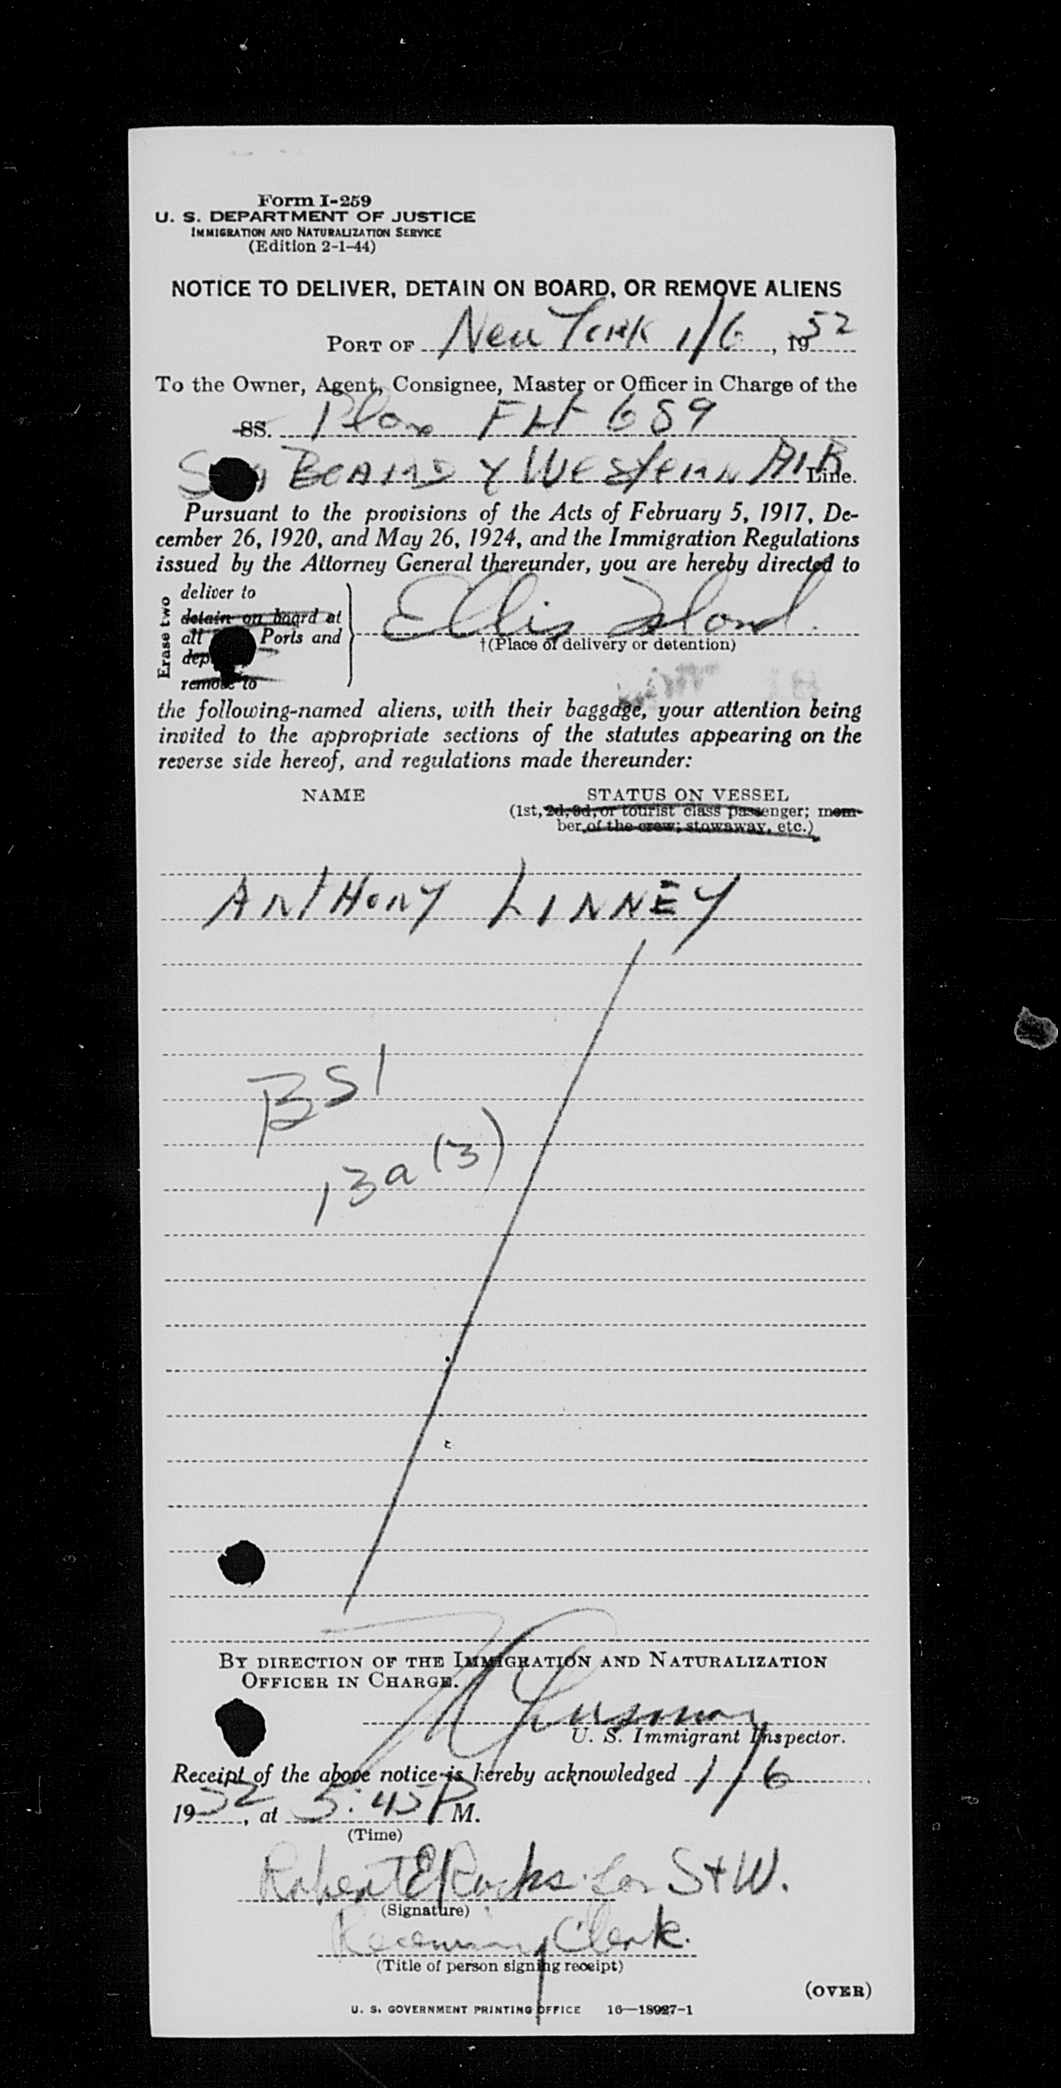 Form I-259
U. S. DEPARTMENT OF JUSTICE
IMMIGRATION AND NATURALIZATION SERVICE
(Edition 2-1-44)
NOTICE TO DELIVER, DETAIN ON BOARD, OR REMOVE ALIENS
PORT OF New York 1/6, 1952
To the Owner, Agent, Consignee, Master or Officer in Charge of the
SS. Plane Flt 659
BOARD & WESTERN AIR Line.
Pursuant to the provisions of the Acts of February 5, 1917, De-
cember 26, 1920, and May 26, 1924, and the Immigration Regulations
issued by the Attorney General thereunder, you are hereby directed to
Erase two
deliver to
detain on board at
all Ports and
remove to
Ellis Island.
†(Place of delivery or detention)
the following-named aliens, with their baggage, your attention being
invited to the appropriate sections of the statutes appearing on the
reverse side hereof, and regulations made thereunder:
NAME STATUS ON VESSEL
(1st, 2d, 3d, or tourist class passenger; mem-
ber of the crew; stowaway, etc.)
ANTHONY LINNEY
BSI
13a(3)
BY DIRECTION OF THE IMMIGRATION AND NATURALIZATION
OFFICER IN CHARGE.
U. S. Immigrant Inspector.
Receipt of the above notice is hereby acknowledged 1/6
1952, at 5:45 P M.
(Time)
Robert E for S & W.
(Signature)
Clerk.
(Title of person signing receipt)
(OVER)
U. S. GOVERNMENT PRINTING OFFICE 16—18927-1